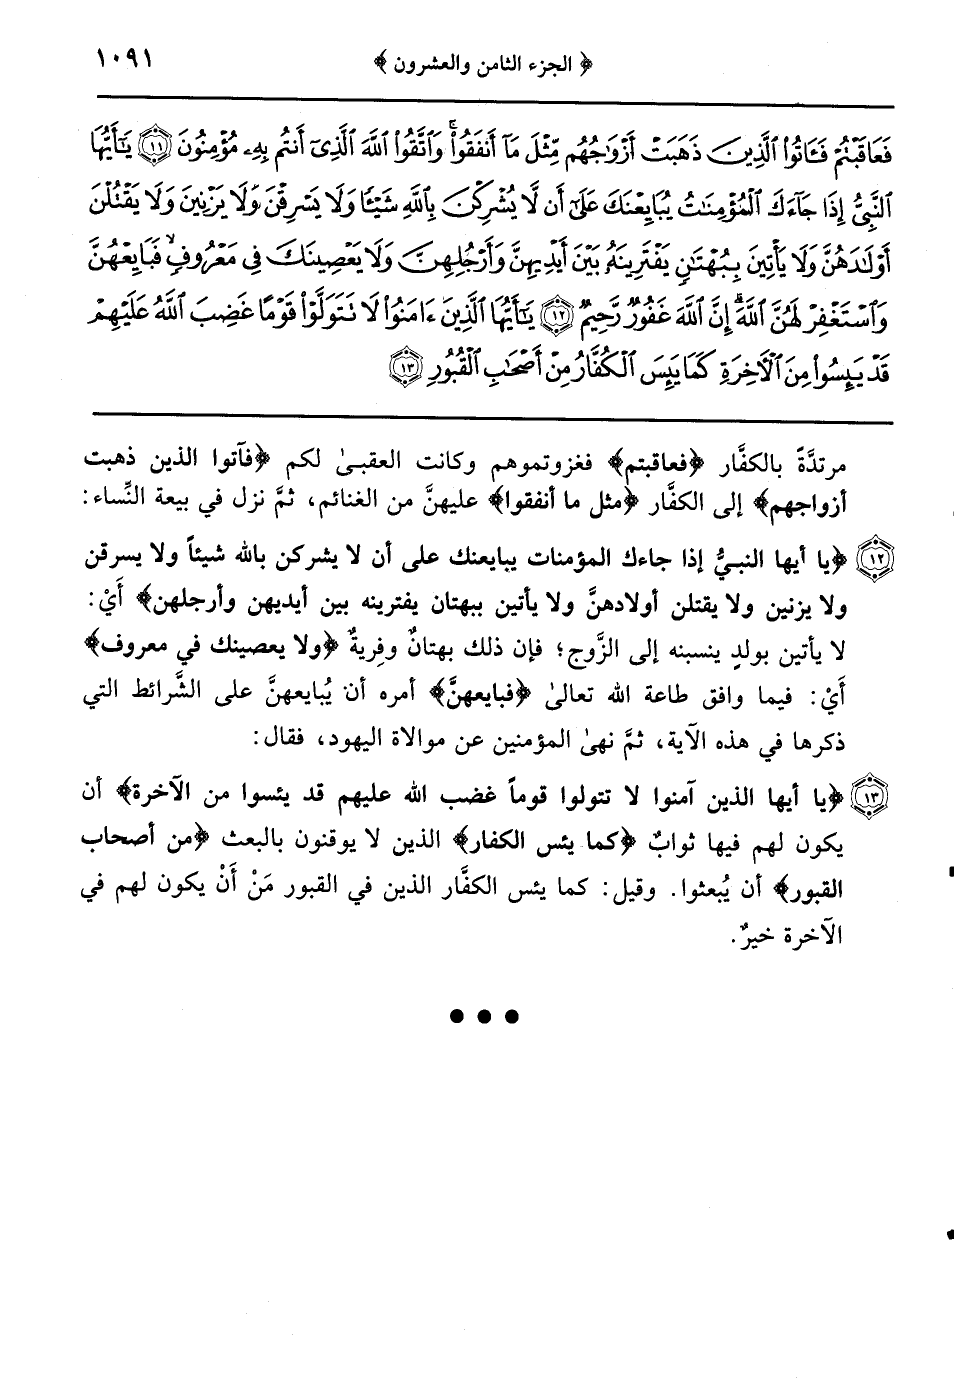 ﴿ الجزء الثامن والعشرون ﴾ ١٠٩١
فَعَاقَبْتُمْ فَـَٔاتُوا۟ ٱلَّذِينَ ذَهَبَتْ أَزْوَٰجُهُم مِّثْلَ مَآ أَنفَقُوا۟ ۚ وَٱتَّقُوا۟ ٱللَّهَ ٱلَّذِىٓ أَنتُم بِهِۦ مُؤْمِنُونَ ١١ يَـٰٓأَيُّهَا
ٱلنَّبِىُّ إِذَا جَآءَكَ ٱلْمُؤْمِنَـٰتُ يُبَايِعْنَكَ عَلَىٰٓ أَن لَّا يُشْرِكْنَ بِٱللَّهِ شَيْـًٔا وَلَا يَسْرِقْنَ وَلَا يَزْنِينَ وَلَا يَقْتُلْنَ
أَوْلَـٰدَهُنَّ وَلَا يَأْتِينَ بِبُهْتَـٰنٍ يَفْتَرِينَهُۥ بَيْنَ أَيْدِيهِنَّ وَأَرْجُلِهِنَّ وَلَا يَعْصِينَكَ فِى مَعْرُوفٍ ۙ فَبَايِعْهُنَّ
وَٱسْتَغْفِرْ لَهُنَّ ٱللَّهَ ۖ إِنَّ ٱللَّهَ غَفُورٌ رَّحِيمٌ ١٢ يَـٰٓأَيُّهَا ٱلَّذِينَ ءَامَنُوا۟ لَا تَتَوَلَّوْا۟ قَوْمًا غَضِبَ ٱللَّهُ عَلَيْهِمْ
قَدْ يَئِسُوا۟ مِنَ ٱلْـَٔاخِرَةِ كَمَا يَئِسَ ٱلْكُفَّارُ مِنْ أَصْحَـٰبِ ٱلْقُبُورِ ١٣
مرتدَّةً بالكفَّار ﴿فعاقبتم﴾ فغزوتموهم وكانت العقبىٰ لكم ﴿فآتوا الذين ذهبت
أزواجهم﴾ إلى الكفَّار ﴿مثل ما أنفقوا﴾ عليهنَّ من الغنائم، ثمَّ نزل في بيعة النِّساء:
١٢ ﴿يا أيها النبيُّ إذا جاءك المؤمنات يبايعنك على أن لا يشركن بالله شيئاً ولا يسرقن
ولا يزنين ولا يقتلن أولادهنَّ ولا يأتين ببهتان يفترينه بين أيديهن وأرجلهن﴾ أَيْ:
لا يأتين بولدٍ ينسبنه إلى الزَّوج؛ فإن ذلك بهتانٌ وفِريةٌ ﴿ولا يعصينك في معروف﴾
أَيْ: فيما وافق طاعة الله تعالىٰ ﴿فبايعهنَّ﴾ أمره أن يُبايعهنَّ على الشَّرائط التي
ذكرها في هذه الآية، ثمَّ نهىٰ المؤمنين عن موالاة اليهود، فقال:
١٣ ﴿يا أيها الذين آمنوا لا تتولوا قوماً غضب الله عليهم قد يئسوا من الآخرة﴾ أن
يكون لهم فيها ثوابٌ ﴿كما يئس الكفار﴾ الذين لا يوقنون بالبعث ﴿من أصحاب
القبور﴾ أن يُبعثوا. وقيل: كما يئس الكفَّار الذين في القبور مَنْ أَنْ يكون لهم في
الآخرة خيرٌ.